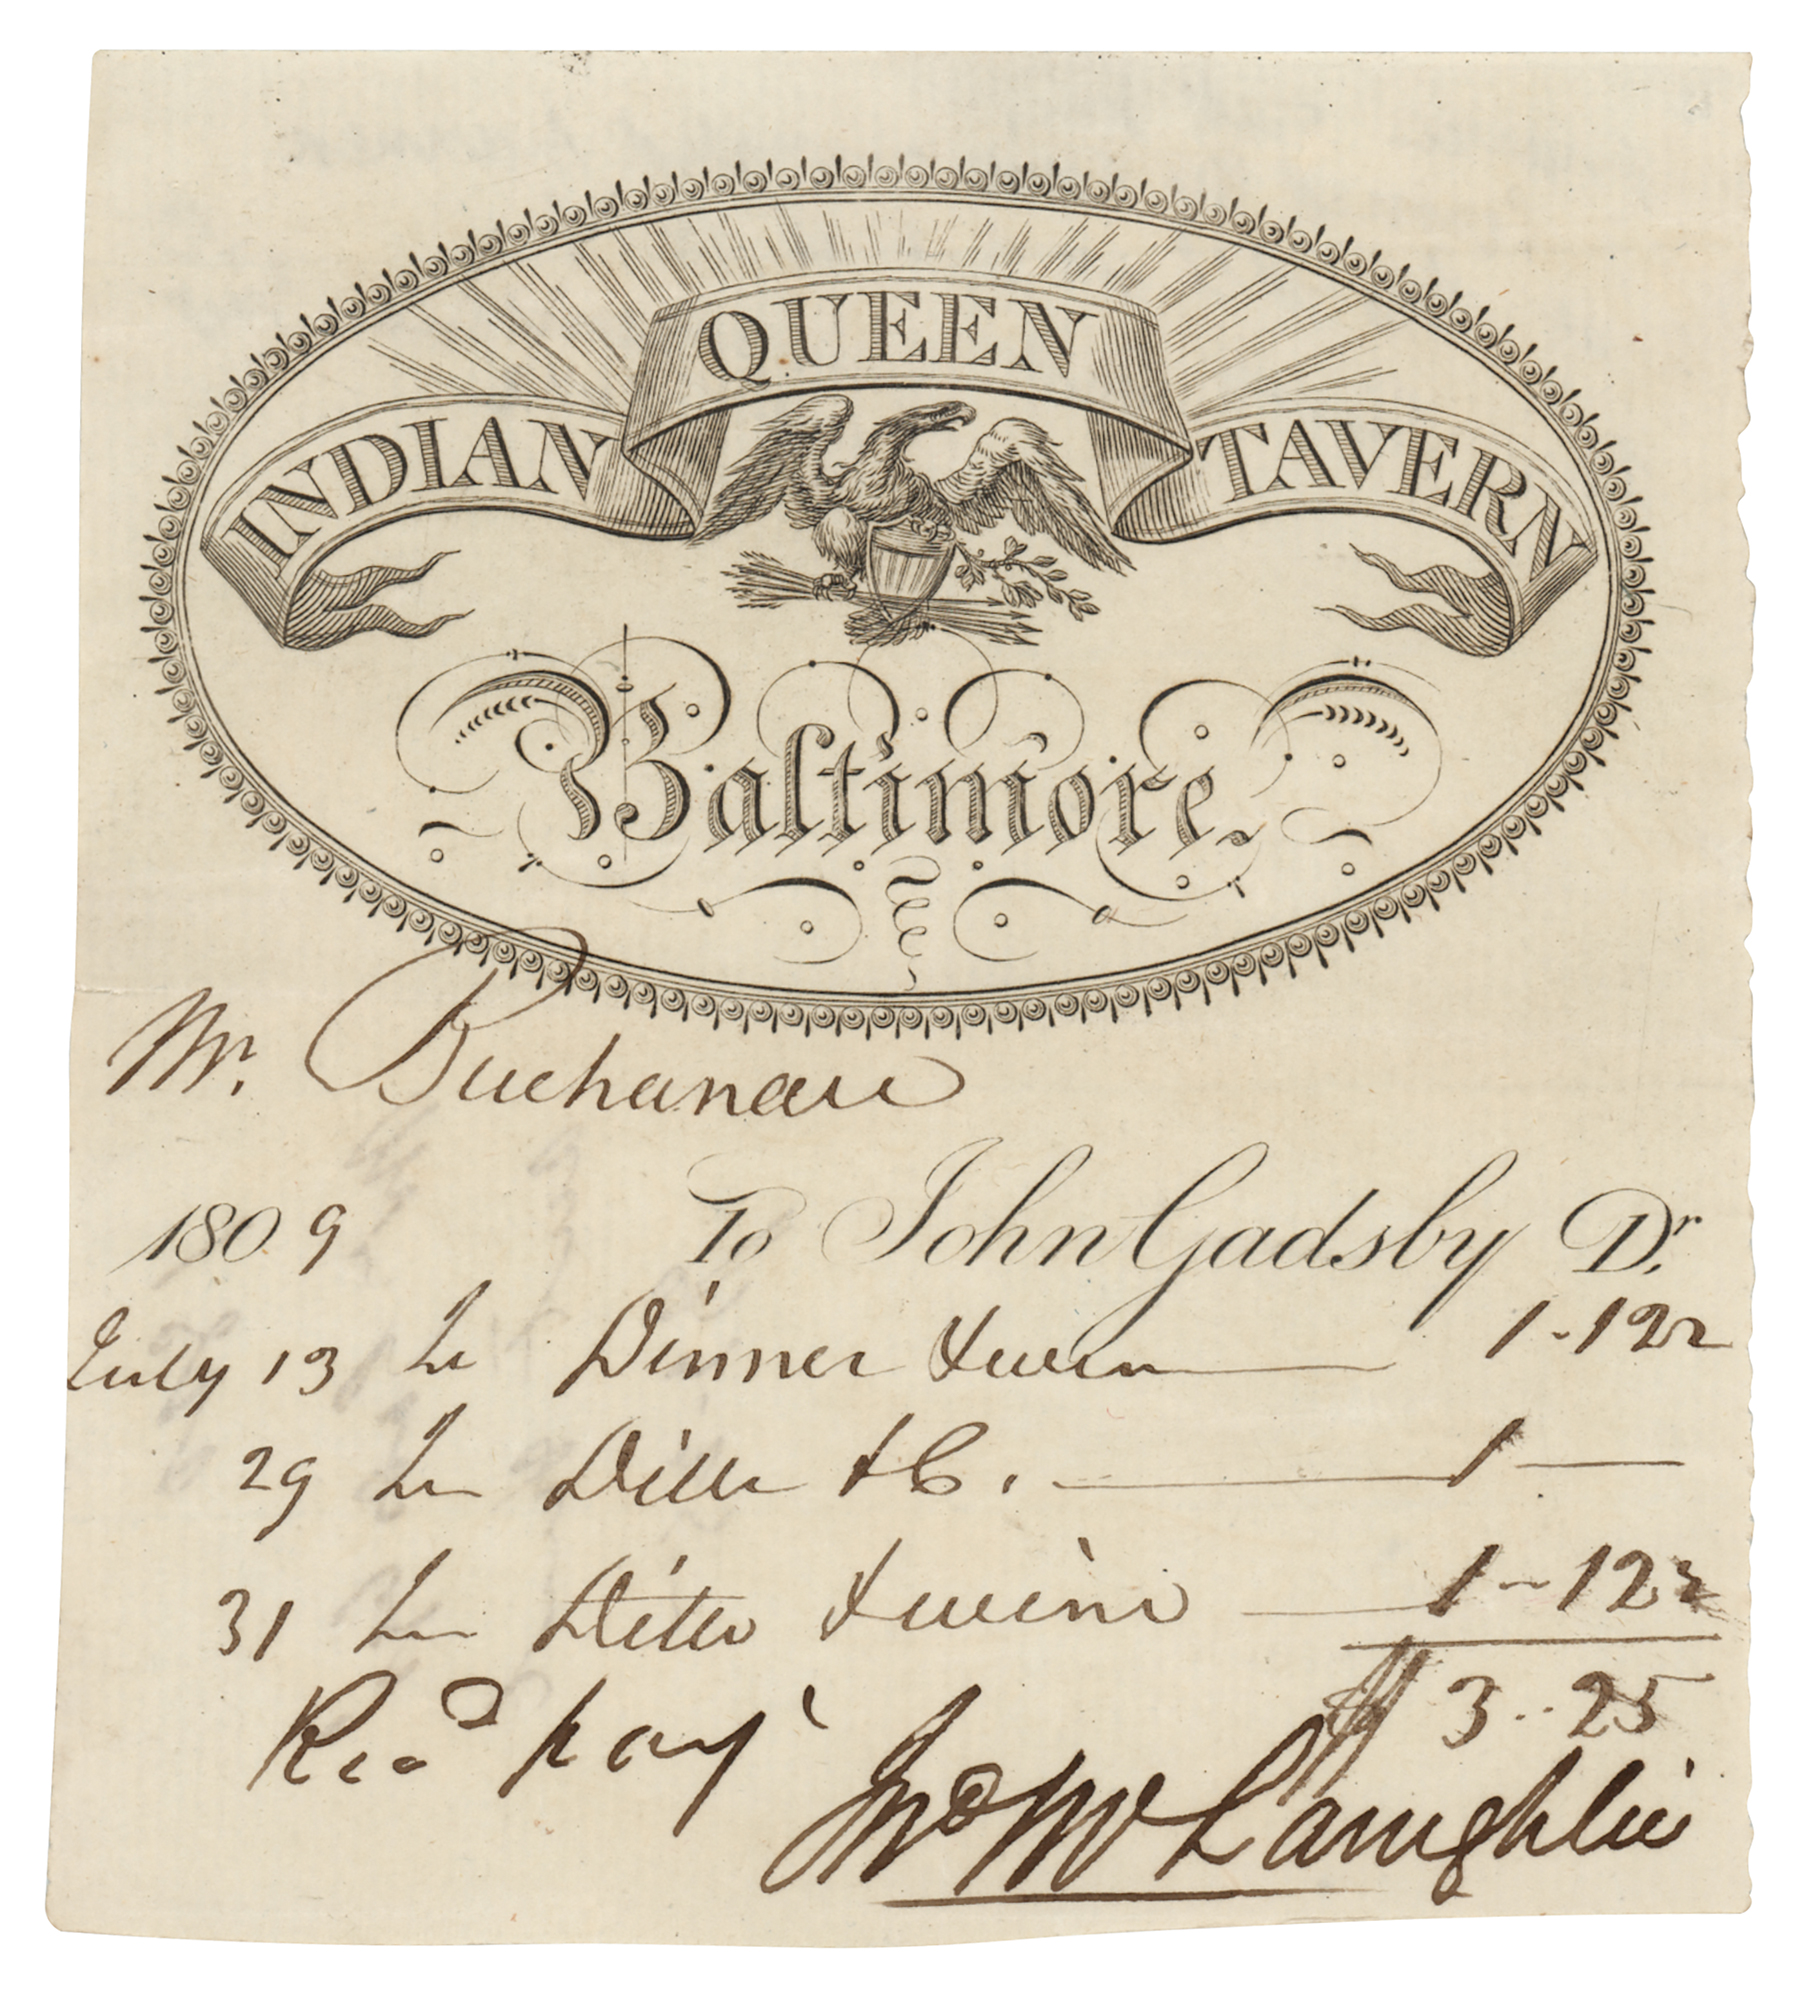 INDIAN QUEEN TAVERN
Baltimore.
Mr. Buchanan
1809 To John Gadsby Dr.
July 13 To Dinner & wine 1-12½
29 To Ditto &C. 1 —
31 To Ditto & wine 1-12½
$ 3..25
Recd payt
Jno McLaughlin